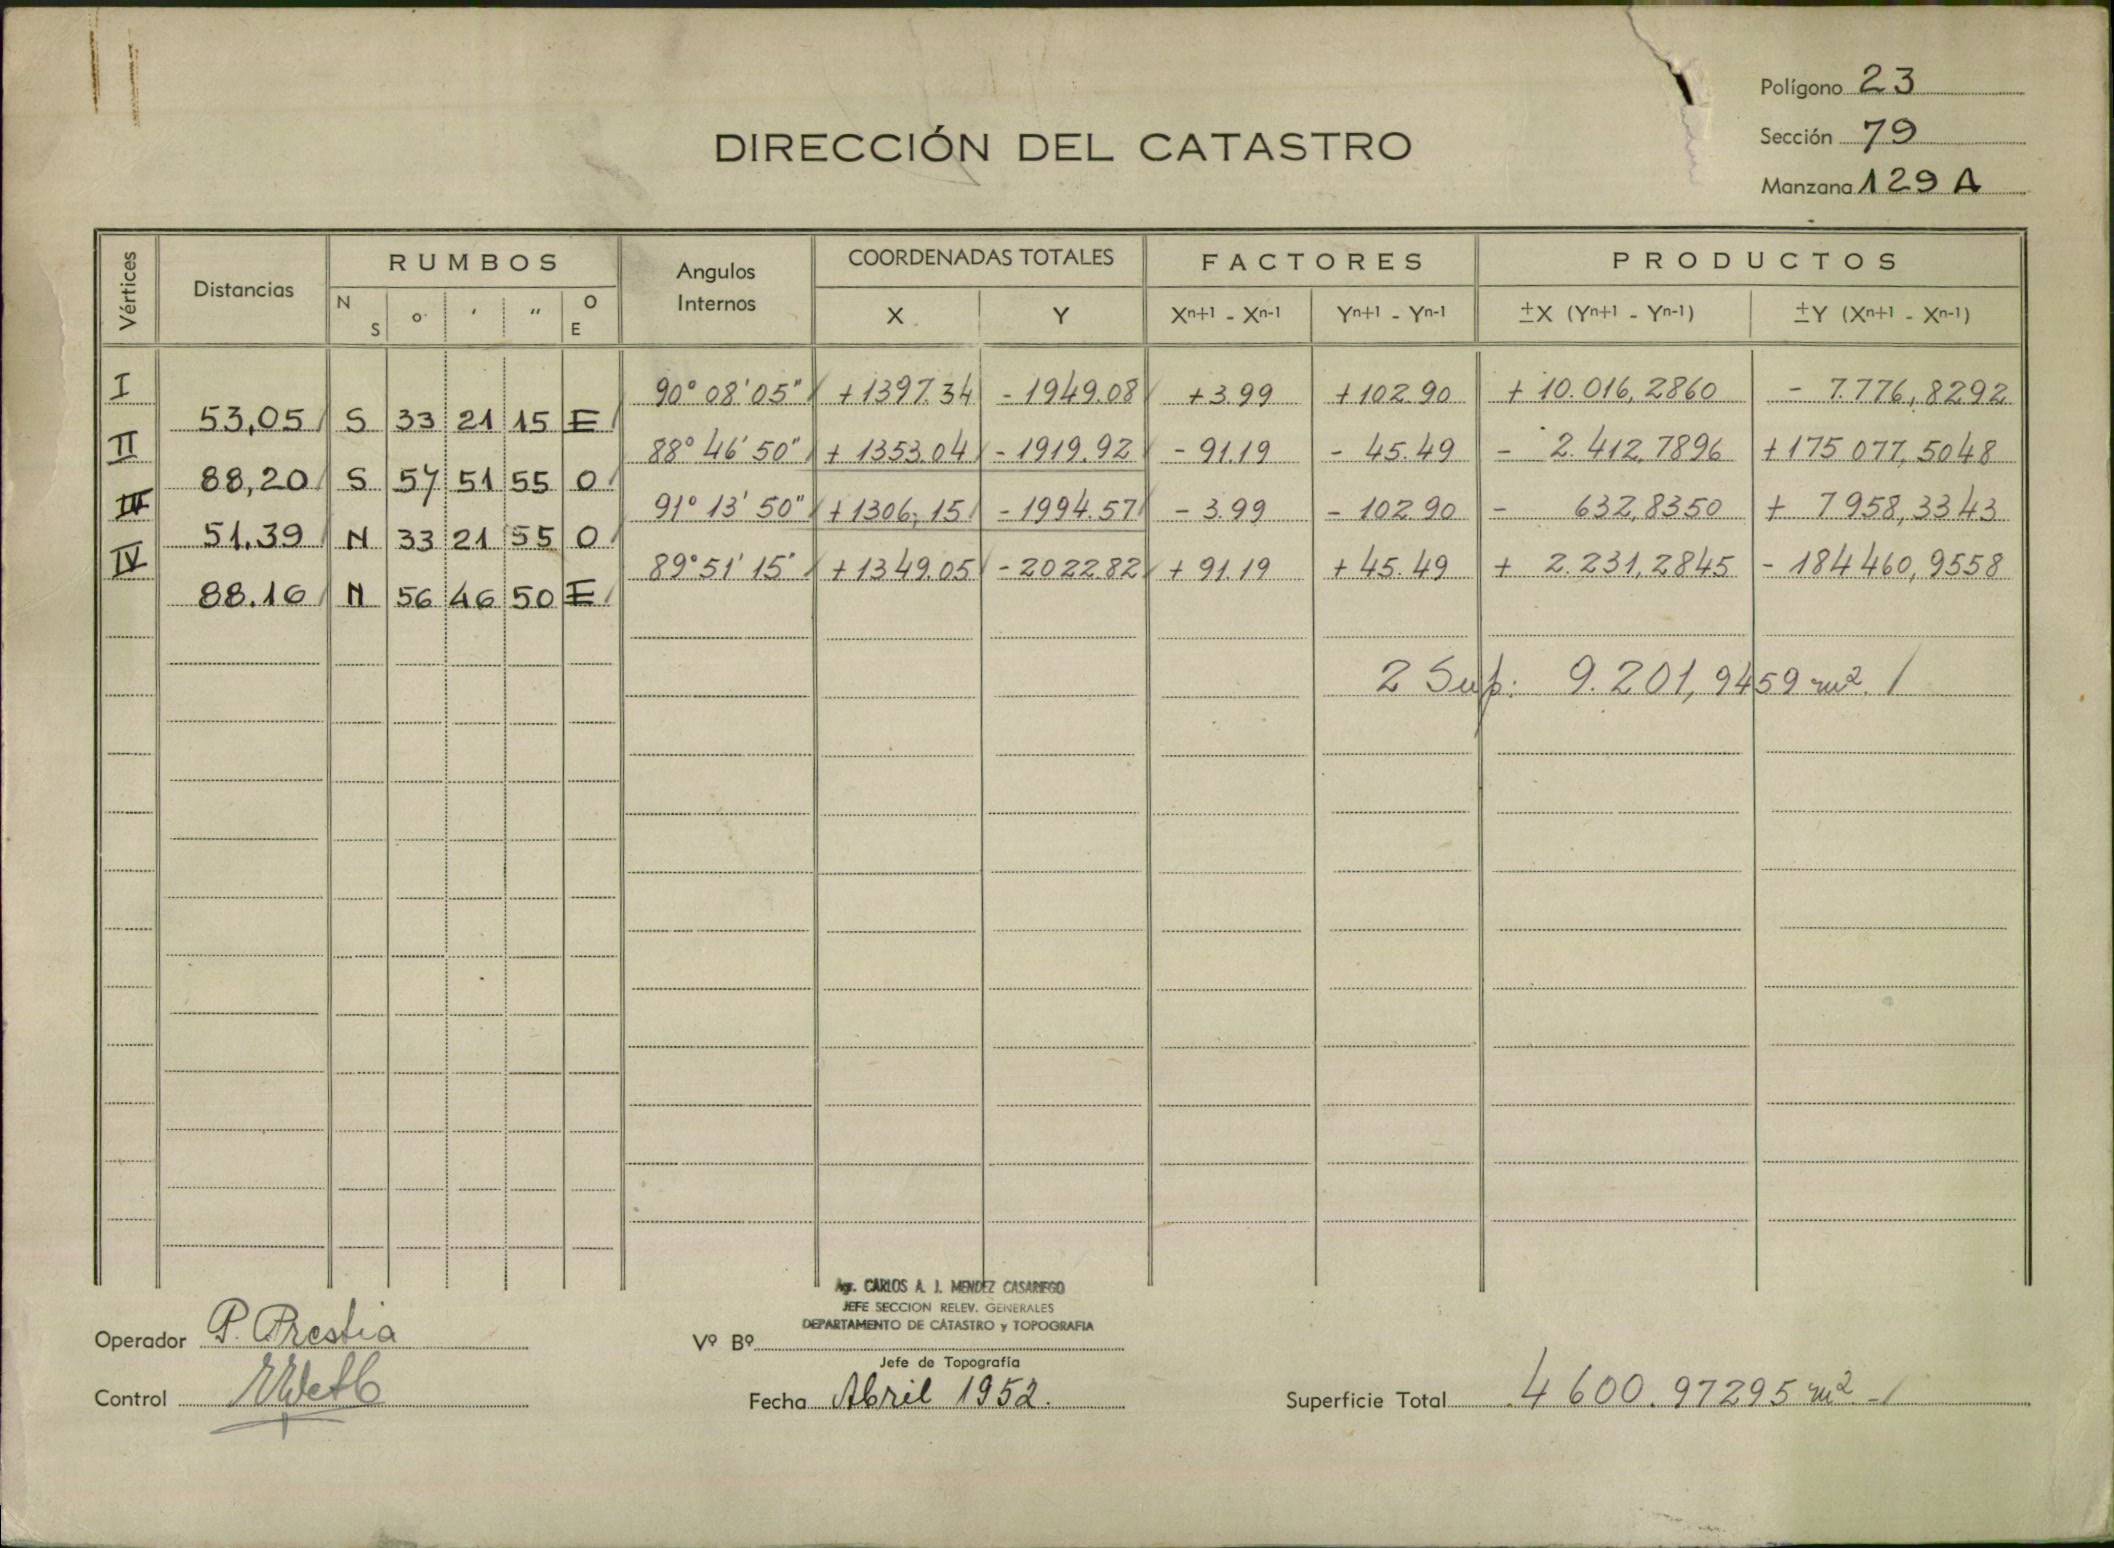 Polígono 23
DIRECCIÓN DEL CATASTRO
Sección 79
Manzana 129 A
Vértices Distancias RUMBOS Angulos Internos COORDENADAS TOTALES FACTORES PRODUCTOS
N S o ' " O E X Y Xn+1 - Xn-1 Yn+1 - Yn-1 ±X (Yn+1 - Yn-1) ±Y (Xn+1 - Xn-1)
I 90° 08' 05" +1397.34 - 1949.08 +3.99 +102.90 + 10.016,2860 - 7.776,8292
53,05 S 33 21 15 E
II 88° 46' 50" + 1353.04 - 1919.92 - 91.19 - 45.49 - 2.412,7896 +175 077,5048
88,20 S 57 51 55 O
III 91° 13' 50" +1306,15 - 1994.57 - 3.99 - 102 90 - 632,8350 + 7958,3343
51.39 N 33 21 55 O
IV 89° 51' 15" +1349.05 - 2022.82 + 91.19 + 45.49 + 2.231,2845 - 184460,9558
88.16 N 56 46 50 E
2 Sup: 9.201,9459 m² /
Agr. CARLOS A. J. MENDEZ CASARIEGO
JEFE SECCION RELEV. GENERALES
DEPARTAMENTO DE CATASTRO y TOPOGRAFIA
Operador P. Prestia
Vº Bº
Jefe de Topografía
Control
Fecha Abril 1952.
Superficie Total 4600.97295 m² -/